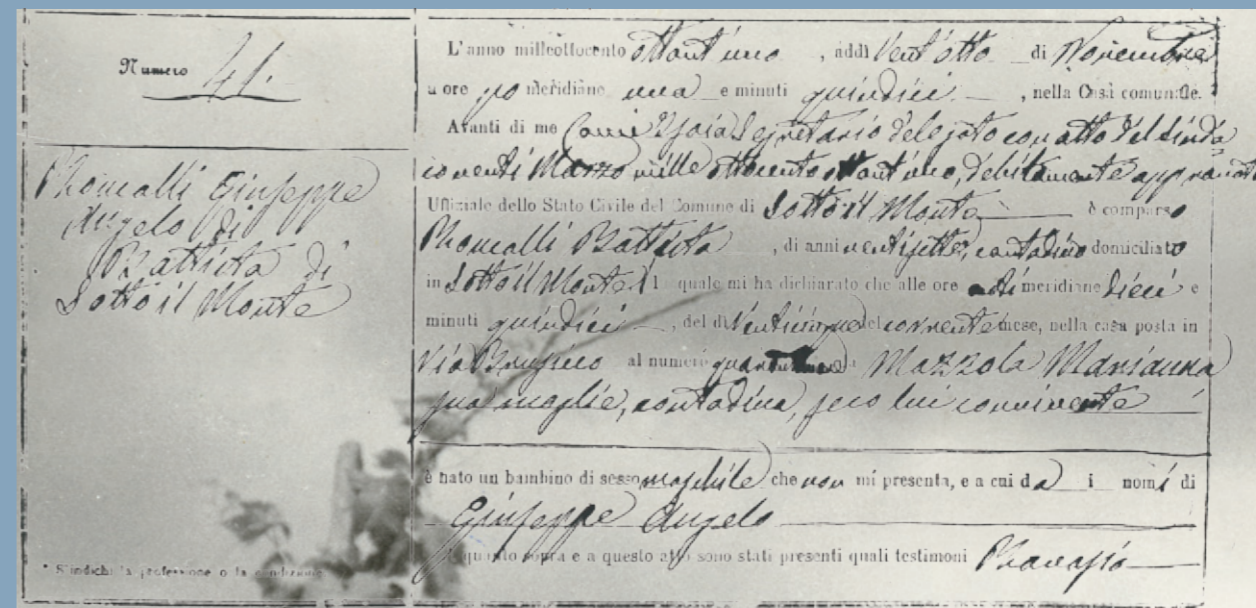 Numero 41.
Roncalli Giuseppe
Angelo di
Battista di
Sotto il Monte
* S'indichi la professione o la condizione
L'anno milleottocento ottant'uno, addì vent'otto di Novembre
a ore po meridiane una e minuti quindici, nella Casa comunale.
Avanti di me Segretario delegato con atto del Sinda
co venti Marzo mille ottocento ottant'uno, debitamente approvato
Uffiziale dello Stato Civile del Comune di Sotto il Monte è comparso
Roncalli Battista, di anni ventisette, contadino domiciliato
in Sotto il Monte il quale mi ha dichiarato che alle ore anti meridiane dieci e
minuti quindici, del dì venticinque del corrente mese, nella casa posta in
Via Brusico al numero da Mazzola Marianna
sua moglie, contadina, seco lui convivente
è nato un bambino di sesso maschile che non mi presenta, e a cui dà i nomi di
Giuseppe Angelo
A quanto sopra e a questo atto sono stati presenti quali testimoni